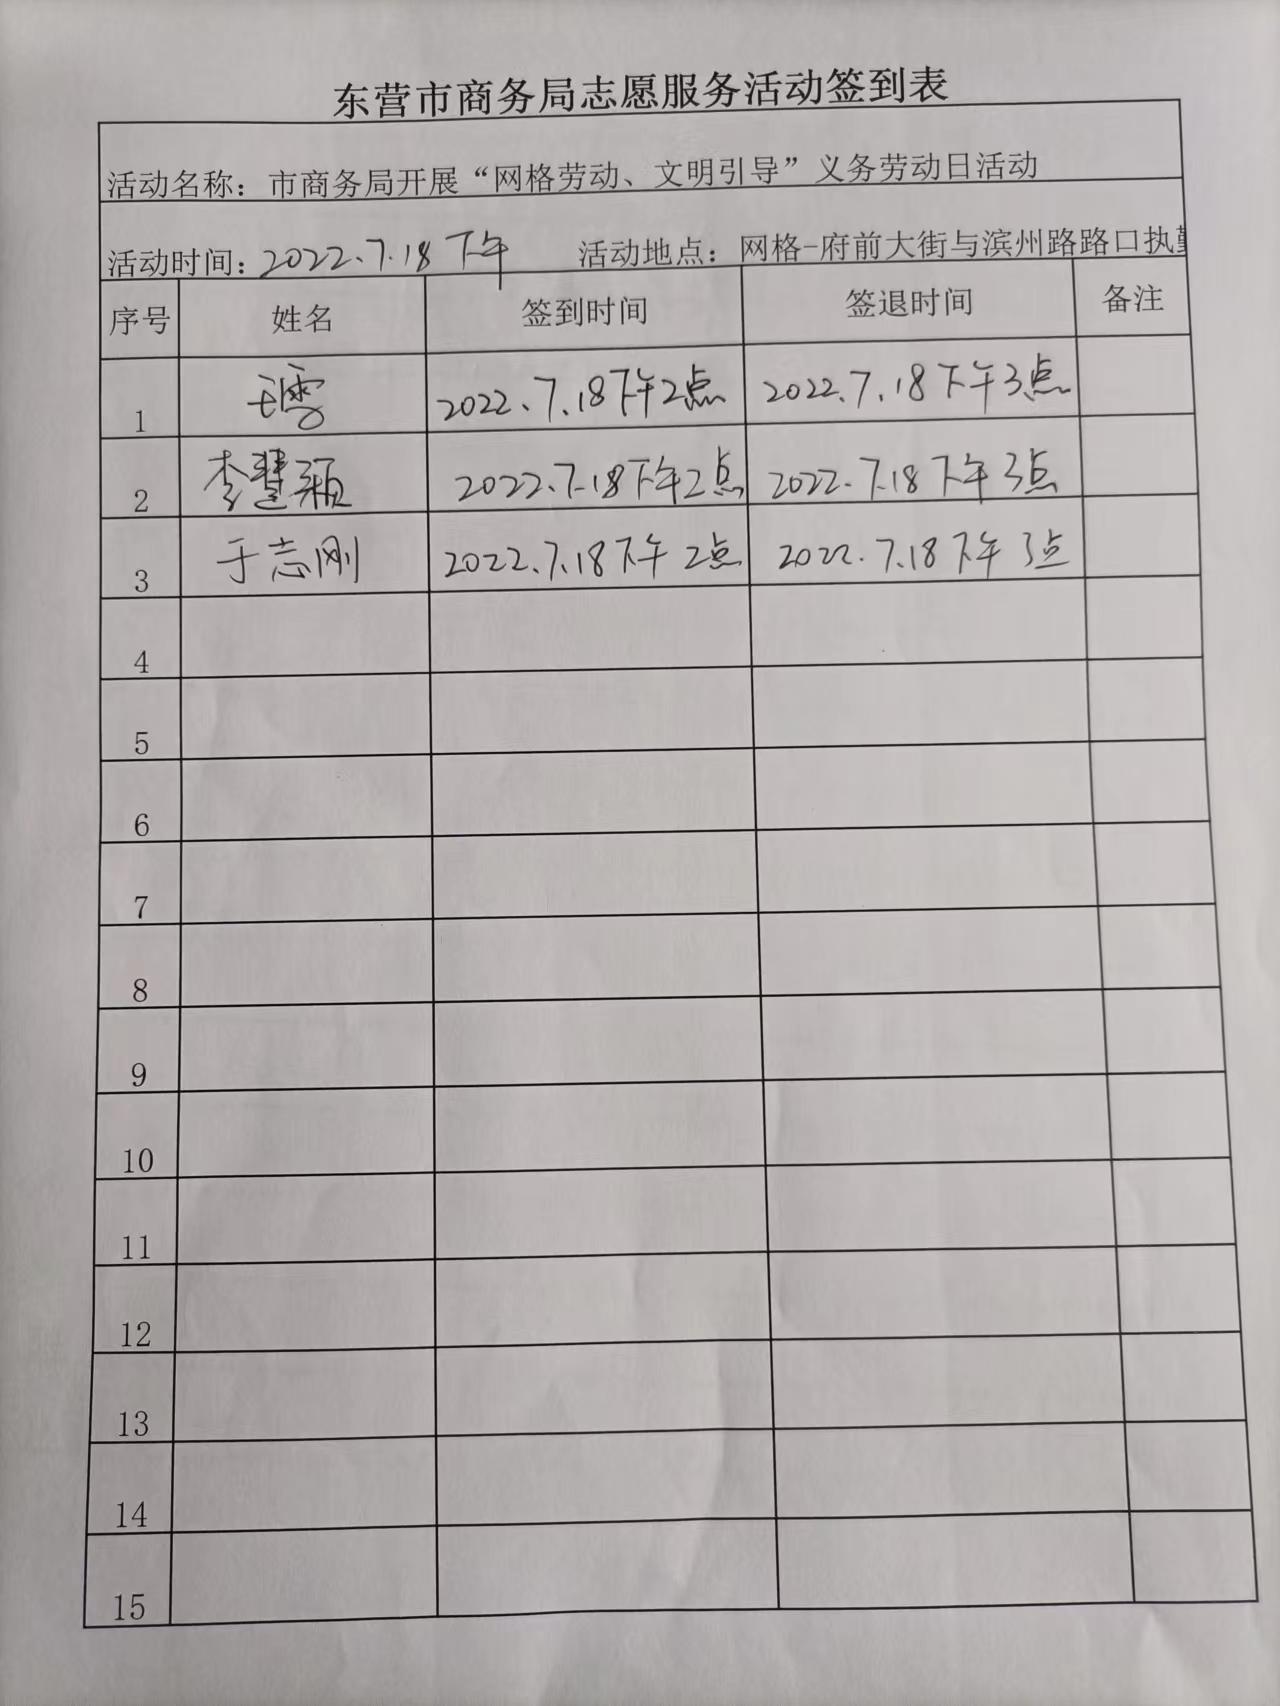 东营市商务局志愿服务活动签到表
活动名称：市商务局开展“网格劳动、文明引导”义务劳动日活动
活动时间：2022.7.18 下午 活动地点：网格-府前大街与滨州路路口执勤
序号 姓名 签到时间 签退时间 备注
1 王雪 2022.7.18下午2点 2022.7.18下午3点
2 李慧颖 2022.7.18下午2点 2022.7.18下午3点
3 于志刚 2022.7.18下午2点 2022.7.18下午3点
4
5
6
7
8
9
10
11
12
13
14
15